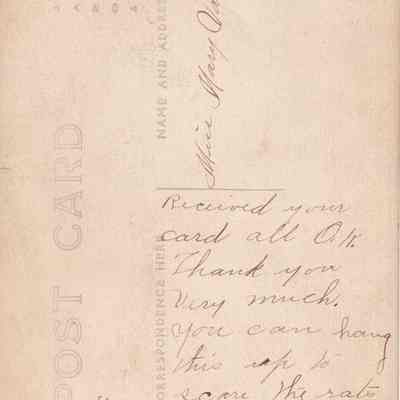 POST CARD
CORRESPONDENCE HERE
NAME AND ADDRESS
Miss Mary
Received your
card all O.K.
Thank you
Very much.
you can hang
this up to
scare the rats